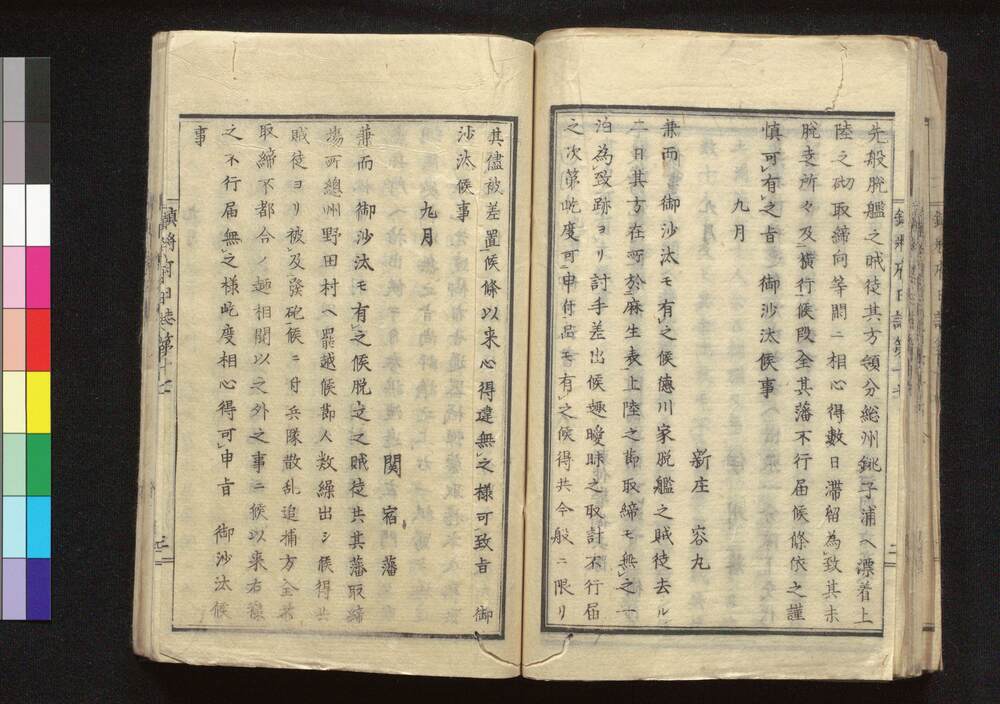 先般脱艦之賊徒其方領分総州銚子浦ヘ漂着上
陸之砌取締向等閑ニ相心得數日滞留為致其末
脱走所々及横行候段全其藩不行届候條依之謹
慎可有之旨　御沙汰候事
九月
新庄　容丸
兼而　御沙汰モ有之候徳川家脱艦之賊徒去ル
二日其方在所於麻生表上陸之節取締モ無之一
泊為致跡ヨリ討手差出候趣曖昧之取計不行届
之次第屹度可申付品モ有之候得共今般ニ限リ
其儘被差置候條以来心得違無之様可致旨　御
沙汰候事
九月
関宿　藩
兼而　御沙汰モ有之候脱走之賊徒共其藩取締
場所總州野田村ヘ罷越候節人数繰出シ候得共
賊徒ヨリ被及發砲候ニ付兵隊散乱追捕方全其
取締不都合ノ趣相聞以之外之事ニ候以来右様
之　不行届無之様屹度相心得可申旨　御沙汰候
事
鎮将府日誌第十七
二
三